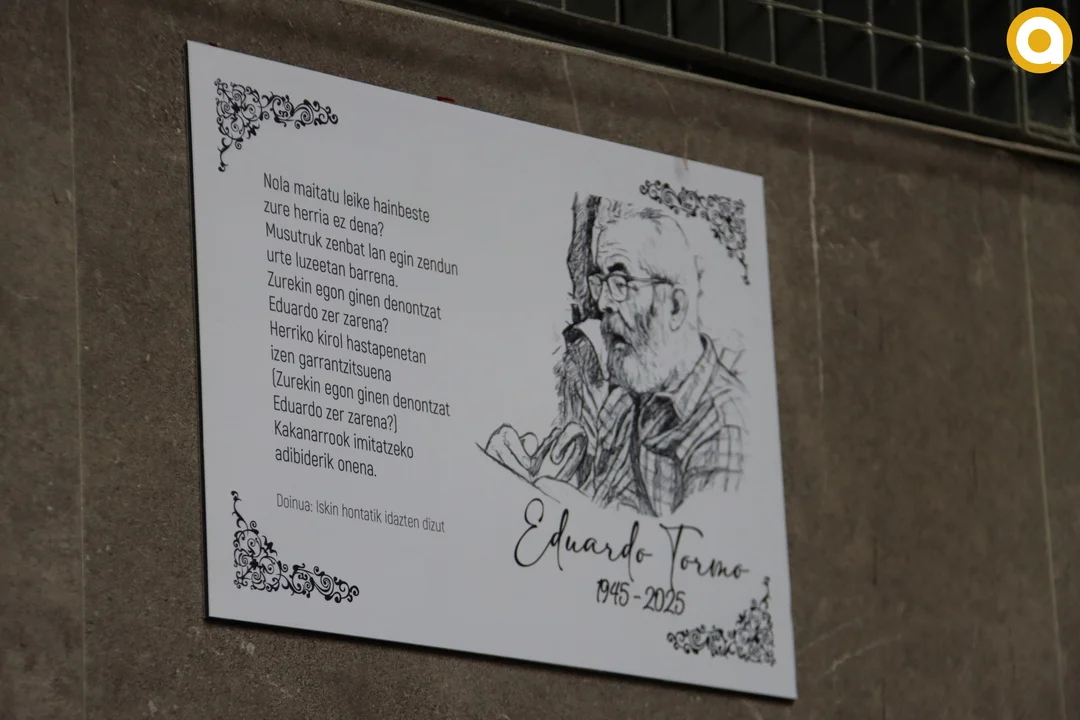 Nola maitatu leike hainbeste
zure herria ez dena?
Musutruk zenbat lan egin zendun
urte luzeetan barrena.
Zurekin egon ginen denontzat
Eduardo zer zarena?
Herriko kirol hastapenetan
izen garrantzitsuena
(Zurekin egon ginen denontzat
Eduardo zer zarena?)
Kakanarrook imitatzeko
adibiderik onena.
Doinua: Iskin hontatik idazten dizut
Eduardo Tormo
1945-2025
a